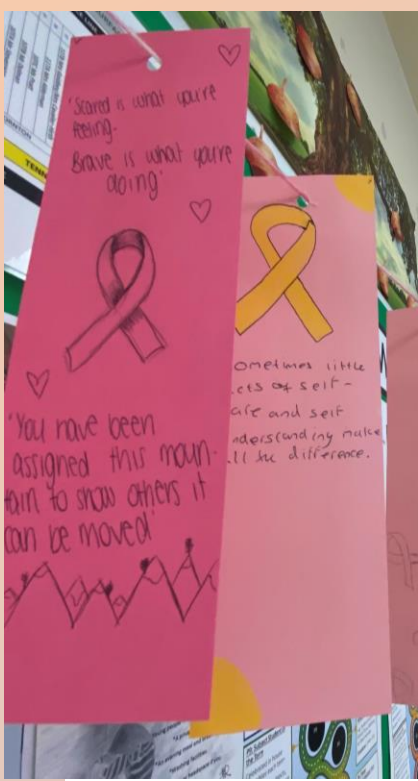 'Scared is what you're
feeling.
Brave is what you're
doing'
'You have been
assigned this moun-
tain to show others it
can be moved'
ometimes little
cts of self-
are and self
nderstanding make
ll the difference.
TENN